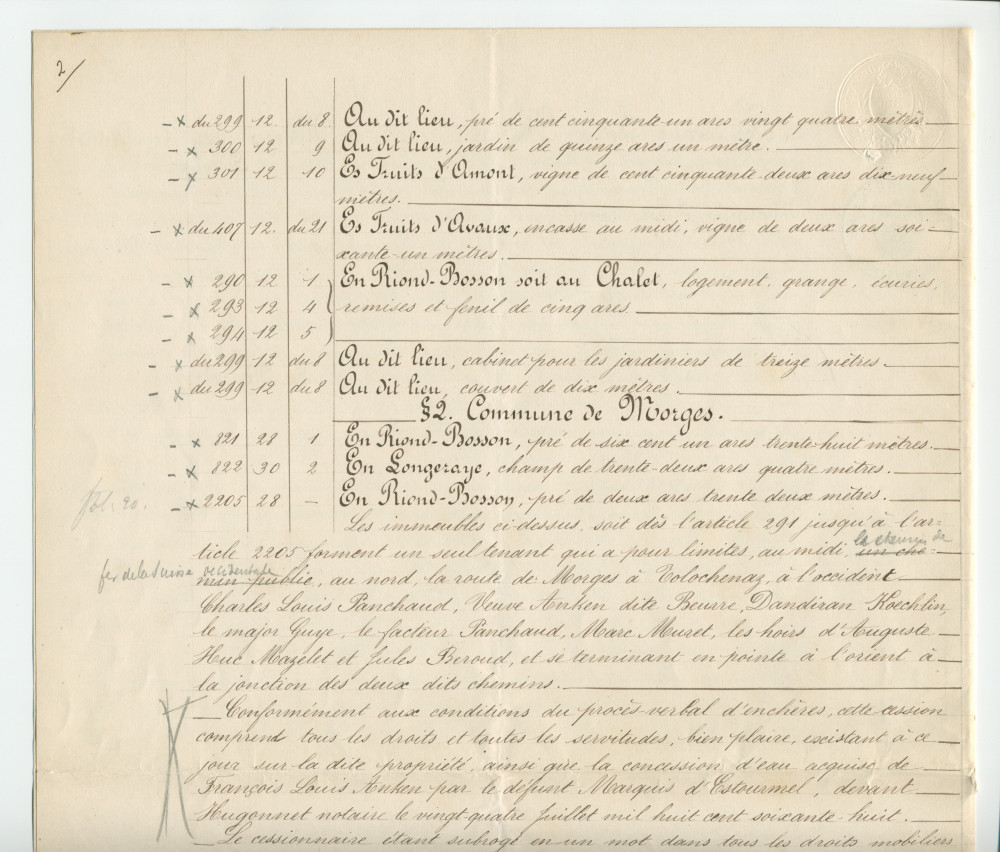 2/
- x du 299 12 du 8 Au dit lieu, pré de cent cinquante-un ares vingt quatre mètres.
- x 300 12 9 Au dit lieu, jardin de quinze ares un mètre.
- x 301 12 10 Es Fruits d'Amont, vigne de cent cinquante-deux ares dix-neuf
mètres.
- x du 407 12 du 21 Es Fruits d'Avaux, encasse au midi, vigne de deux ares soi-
xante-un mètres.
- x 290 12 1 En Riond-Bosson soit au Chalet, logement, grange, écuries,
- x 293 12 4 remises et fenil de cinq ares.
- x 294 12 5
- x du 299 12 du 8 Au dit lieu, cabinet pour les jardiniers de treize mètres.
- x du 299 12 du 8 Au dit lieu, couvert de dix mètres.
§2. Commune de Morges.
- x 821 28 1 En Riond-Bosson, pré de six cent un ares trente-huit mètres.
- x 822 30 2 En Longeraye, champ de trente-deux ares quatre mètres.
- x 2205 28 - En Riond-Bosson, pré de deux ares trente deux mètres.
fol. 20.
Les immeubles ci-dessus, soit dès l'article 291 jusqu'à l'ar-
le chemin de
ticle 2205 forment un seul tenant qui a pour limites, au midi, un che-
fer de la Suisse occidentale
min public, au nord, la route de Morges à Tolochenaz, à l'occident
Charles Louis Panchaud, Veuve Anken dite Beurre, Dandiran Koechlin,
le major Guye, le facteur Panchaud, Marc Muret, les hoirs d'Auguste
Huc Mazelet et Jules Beroud, et se terminant en pointe à l'orient à
la jonction des deux dits chemins.
Conformément aux conditions du procès verbal d'enchères, cette cession
comprend tous les droits et toutes les servitudes, bien plaire, existant à ce
jour sur la dite propriété, ainsi que la concession d'eau acquise de
François Louis Anken par le défunt Marquis d'Estourmel, devant
Hugonnet notaire le vingt-quatre Juillet mil huit cent soixante-huit.
Le cessionnaire étant subrogé en un mot dans tous les droits mobiliers